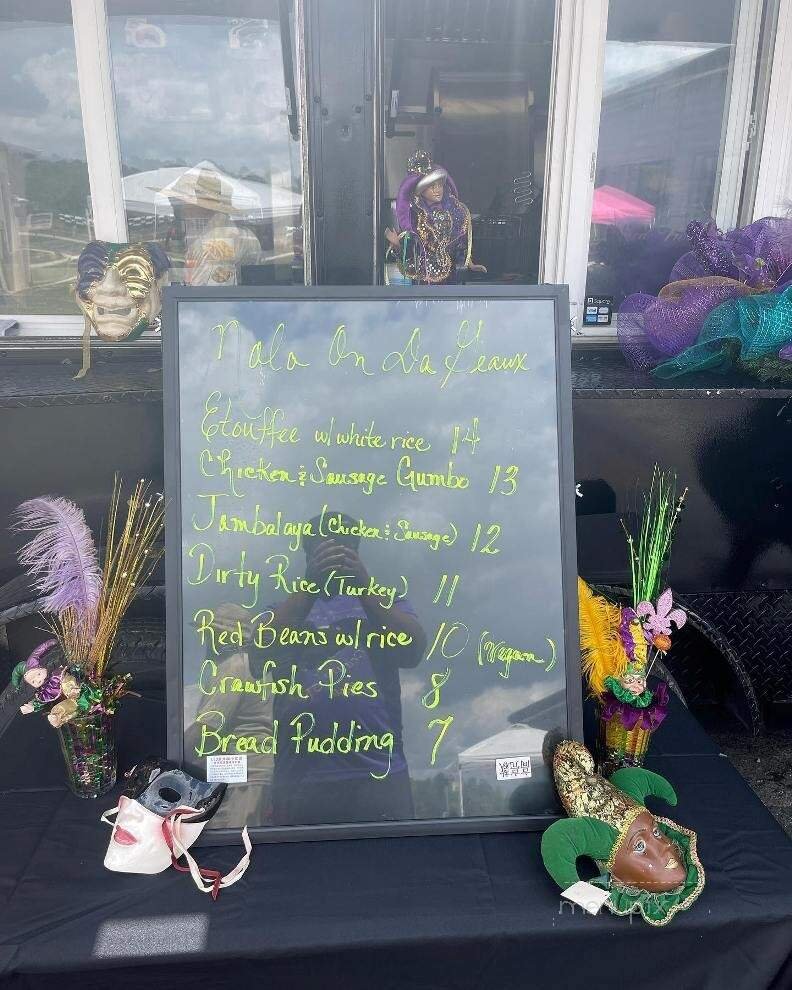 Nola On Da Geaux
Etouffee w/white rice 14
Chicken & Sausage Gumbo 13
Jambalaya (Chicken & Sausage) 12
Dirty Rice (Turkey) 11
Red Beans w/rice 10 (Vegan)
Crawfish Pies 8
Bread Pudding 7
menupix